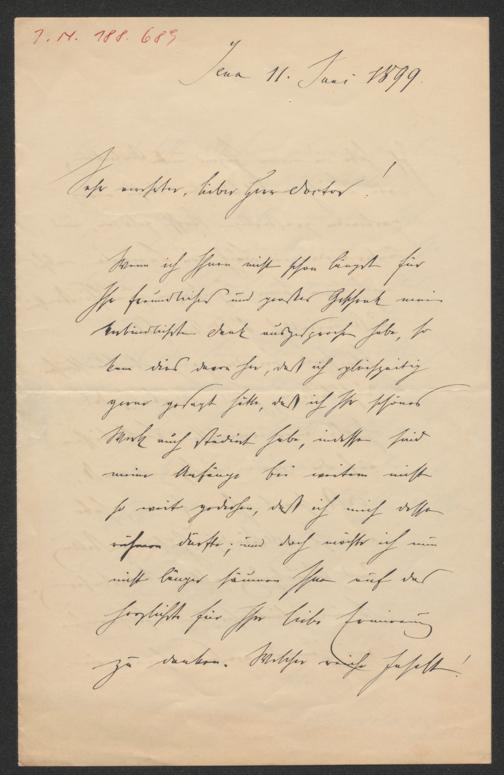 J. N. 188.689
Jena 11. Juni 1899.
Sehr verehrter, lieber Herr Doctor!
Wenn ich Ihnen nicht schon längst für
Ihr freundliches und großes Geschenk mein
verbindlichsten Dank ausgesprochen habe, so
kam dies daven her, daß ich gleichzeitig
gerne gesagt hätte, daß ich Ihr schönes
Werk auch studirt habe, indessen sind
meine Anfänge bei weitem nicht
so weit gediehen, daß ich mich dessen
rühmen dürfte; und doch möchte ich nun
nicht länger säumen Ihnen auf das
herzlichste für Ihre liebe Erinnerung
zu danken. Welcher reiche Inhalt!